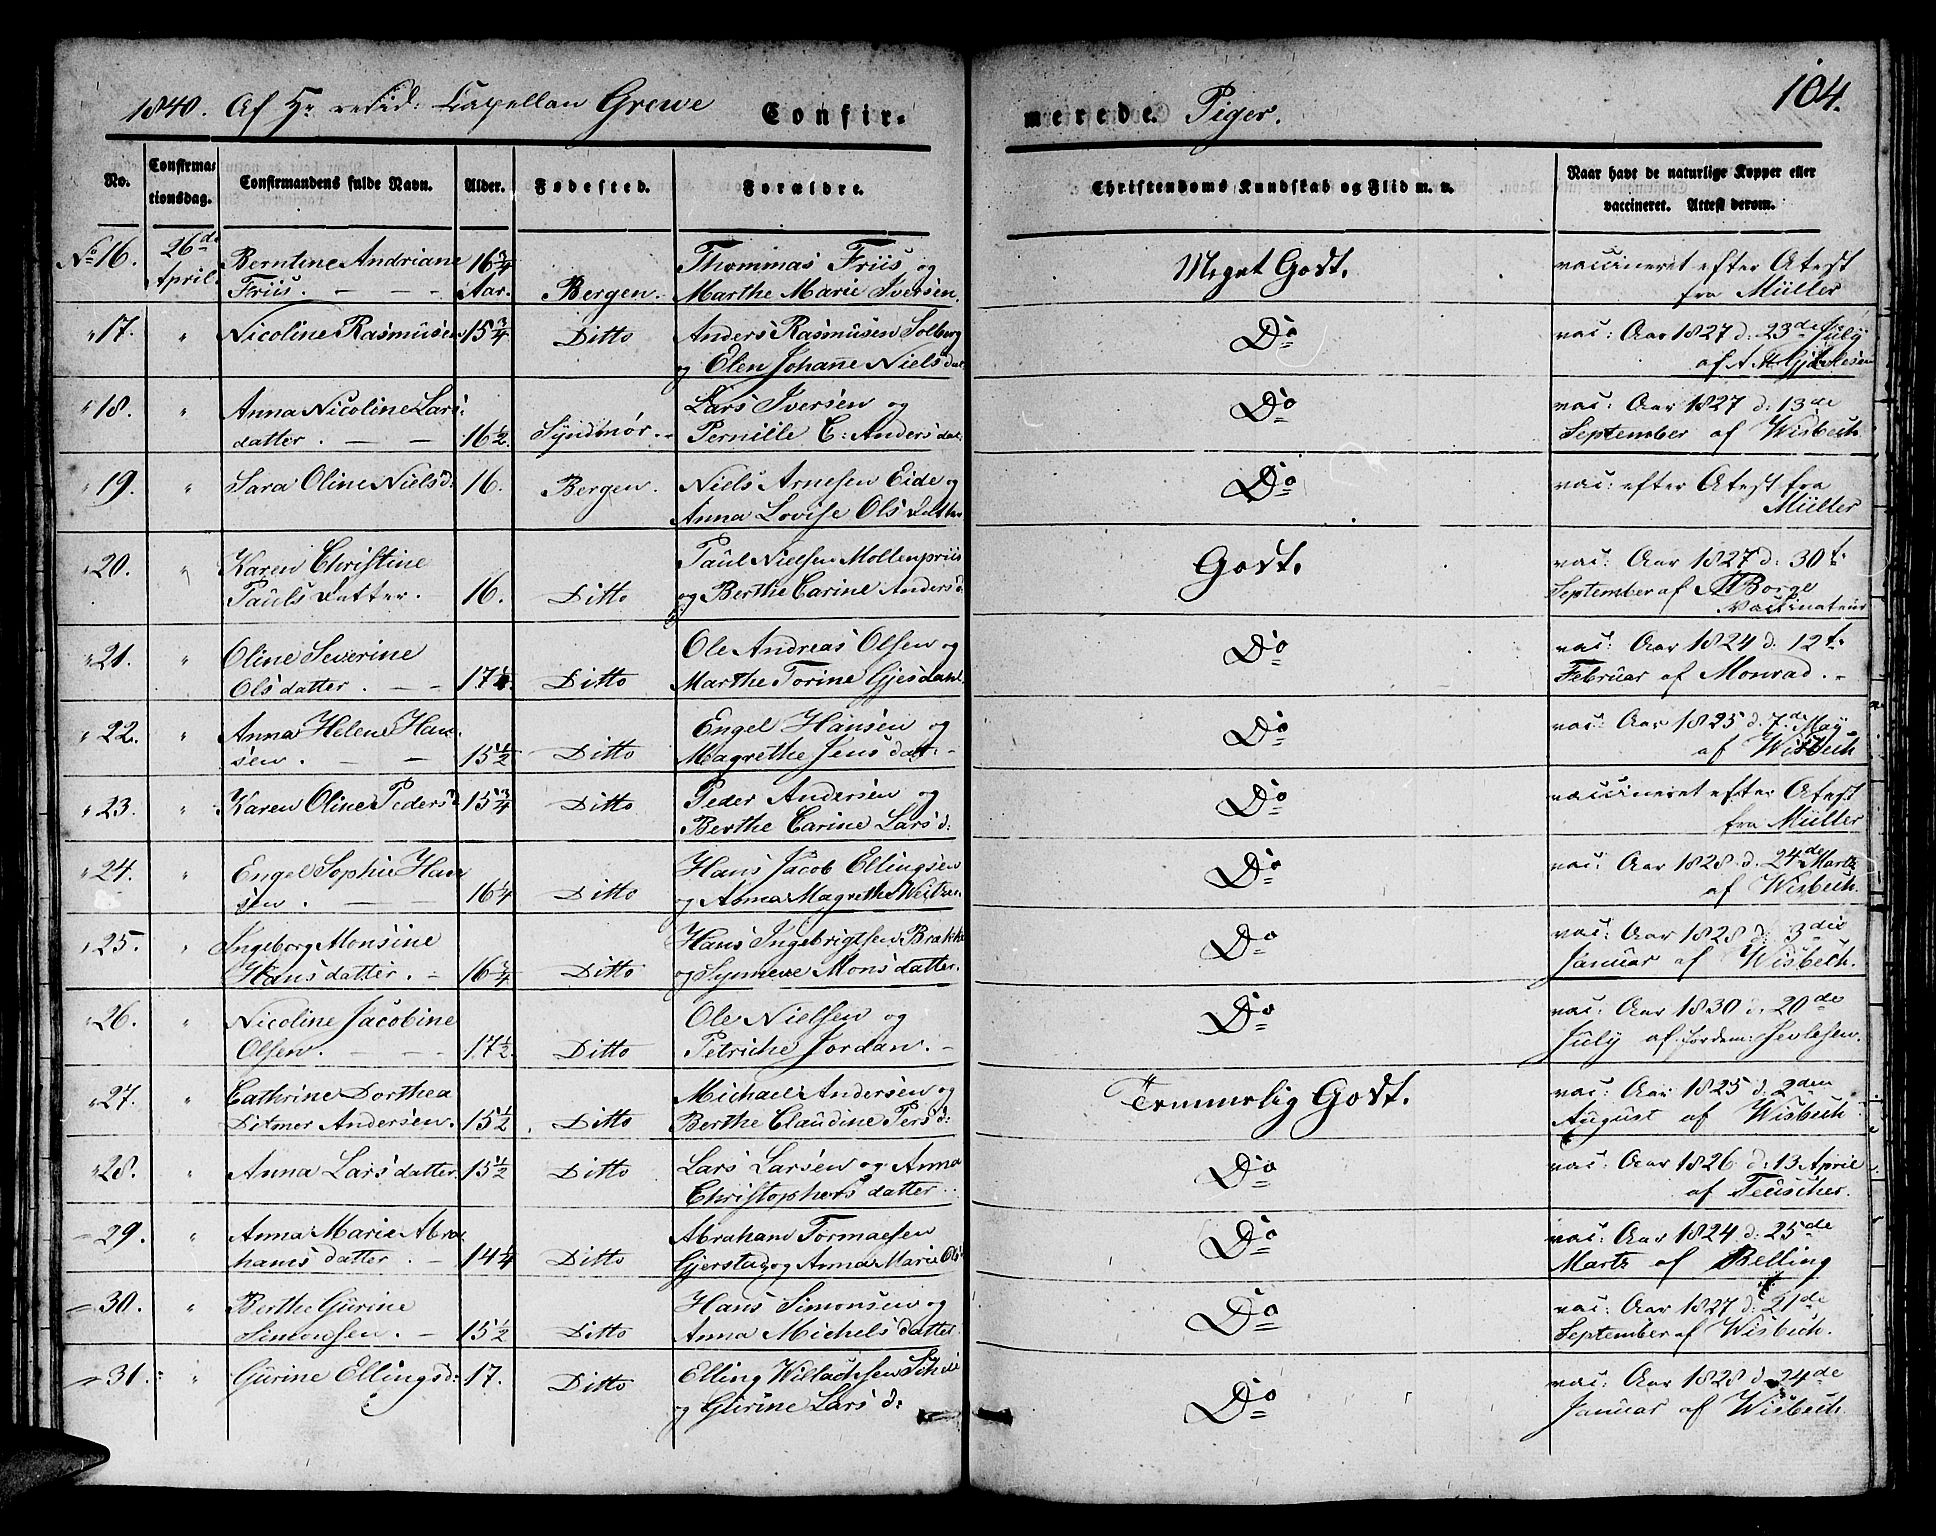 1840. Af Hr resid: Capellan Grewe Confir-
merede Piger. 104.
No. Confirmationsdag. Confirmandens fulde Navn. Alder. Fødested. Forældre. Christendoms Kundskab og Flid m. v. Naar havt de naturlige Kopper eller vaccineret. Attest derom.
No 16. 26de Berntine Andriane 16 3/4 Thommas Friis og Meget Godt. vaccineret efter Atest
April. Friis. Aar. Bergen. Marthe Marie Iversen. fra Müller
" 17. " Nicoline Rasmusen 15 3/4 Ditto Anders Rasmusen Solberg Do vac: Aar 1827 d: 23de July
og Elen Johane Niels dat. af
" 18. " Anna Nicoline Lars' Lars Iversen og Do vac: Aar 1827 d: 13de
datter. 16 1/2. Syndmør. Pernille C: Anders dat. September af Wisbech
" 19. " Sara Oline Niels d: 16. Bergen. Niels Arnesen Eide og Do vac: efter Atest fra
Anna Lovise Ols datter Müller
" 20. " Karen Christine Paul Nielsen Mollenpriis Godt. vac: Aar 1827 d: 30t.
Pauls datter. 16. Ditto og Berthe Carine Anders d: September af Borge
Vaccinateur
" 21. " Oline Severine Ole Andreas Olsen og Do vac: Aar 1824 d: 12t.
Ols datter. 17 Ditto Marthe Torine Gjesdahl. Februar af Monrad.
" 22. " Anna Helene Han- Engel Hansen og Do vac: Aar 1825 d. 7de May
sen. 15 1/2 Ditto Magrethe Jens dat. af Wisbech
" 23. " Karen Oline Peders d 15 3/4 Ditto Peder Andersen og Do vaccineret efter Atest
Berthe Carine Lars d: fra Müller
" 24. " Engel Sophie Han Hans Jacob Ellingsen Do vac: Aar 1828 d. 24de Marts
sen. 16 1/4 Ditto og Anna Magrethe af Wisbech.
" 25. " Ingeborg Monsine Hans Ingebrigtsen Brække Do vac: Aar 1828 d: 3die
Hans datter. 16 3/4 Ditto og Synneve Mons datter. Januar af Wisbech.
" 26. " Nicoline Jacobine Ole Nielsen og Do vac: Aar 1830 d: 20de
Olsen. 17 1/2. Ditto Petriche Jordan. July af Jordem:
" 27. " Cathrine Dorthea Michael Andersen og Temmelig Godt. vac: Aar 1825 d. 2den
Ditmer Andersen. 15 1/2. Ditto Berthe Claudine Pers d: August af Wisbech
" 28. " Anna Lars datter. 15 1/2 Ditto Lars Larsen og Anna Do vac: Aar 1826 d: 13 April
Christophers datter. af Teuscher.
29. " Anna Marie Abra Abraham Tormaesen Do vac: Aar 1824 d: 25de
hams datter. 14 1/4 Ditto Gjerstad og Anna Marie Ols Marts af Belling
30. " Berthe Gurine Hans Simonsen og Do vac: Aar 1827 d: 21de
Simonsen. 15 1/2 Ditto Anna Michels datter. September af Wisbech.
31. " Gurine Ellings d: 17. Ditto Elling Willachsen Do vac: Aar 1828 d. 24de
og Gurine Lars d: Januar af Wisbech.